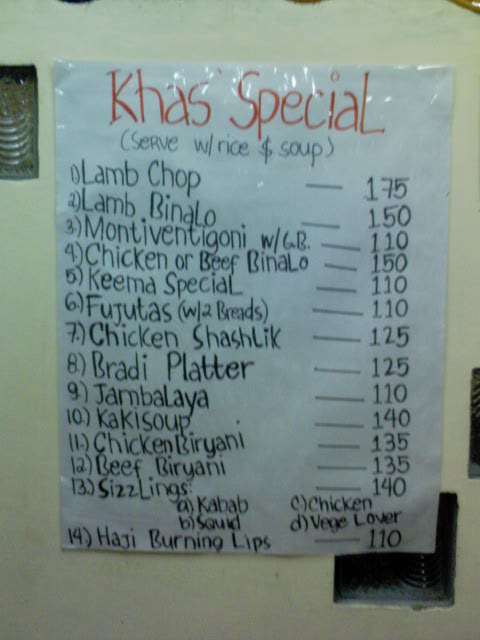 Khas' Special
(Serve w/rice $ soup)
1) Lamb Chop — 175
2) Lamb Binalo — 150
3) Montiventigoni w/G.B. — 110
4) Chicken or Beef Binalo — 150
5) Keema Special — 110
6) Fujutas (w/2 Breads) — 110
7) Chicken Shashlik — 125
8) Bradi Platter — 125
9) Jambalaya — 110
10) Kakisoup — 140
11) Chicken Biryani — 135
12) Beef Biryani — 135
13) Sizzlings: — 140
a) Kabab c) Chicken
b) Squid d) Vege Lover
14) Haji Burning Lips — 110